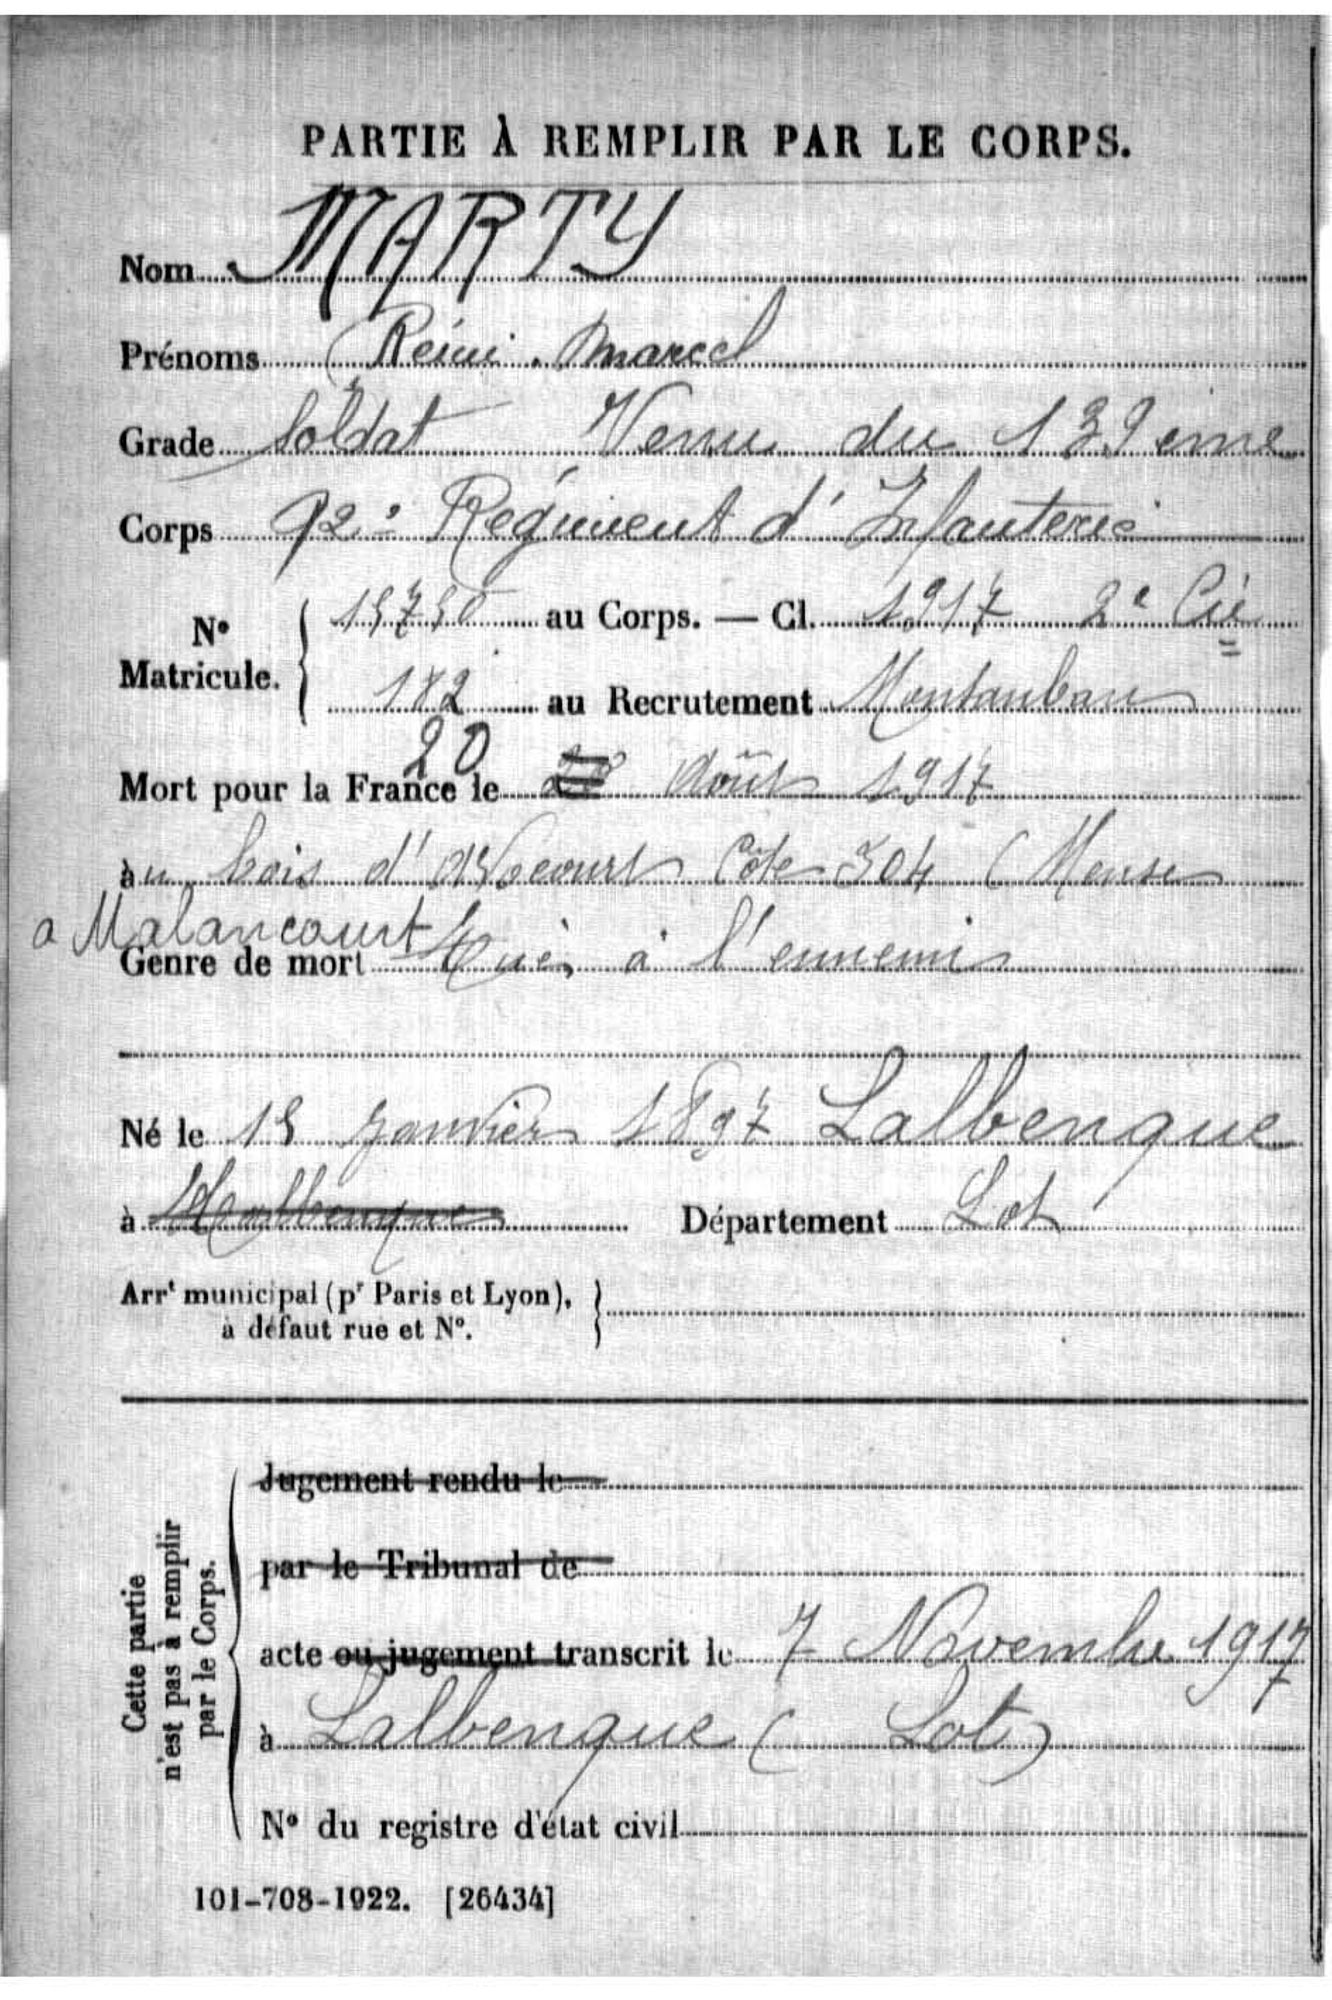 PARTIE À REMPLIR PAR LE CORPS.
Nom MARTY
Prénoms Rémi. Marcel
Grade Soldat Venu du 139eme
Corps 92e Régiment d'Infanterie
N° Matricule. { 15750 au Corps. — Cl. 1917 2e Cie
182 au Recrutement Montauban
20
Mort pour la France le août 1917
au bois d'Avocourt Côte 304 (Meuse
a Malancourt
Genre de mort Tué à l'ennemi
Né le 15 Janvier 1897 Lalbenque
à Département Lot
Arrt municipal (pr Paris et Lyon),
à défaut rue et N°.
Cette partie
n'est pas à remplir
par le Corps.
Jugement rendu le
par le Tribunal de
acte ou jugement transcrit le 7 Novembre 1917
à Lalbenque (Lot)
N° du registre d'état civil
101-708-1922. [26434]